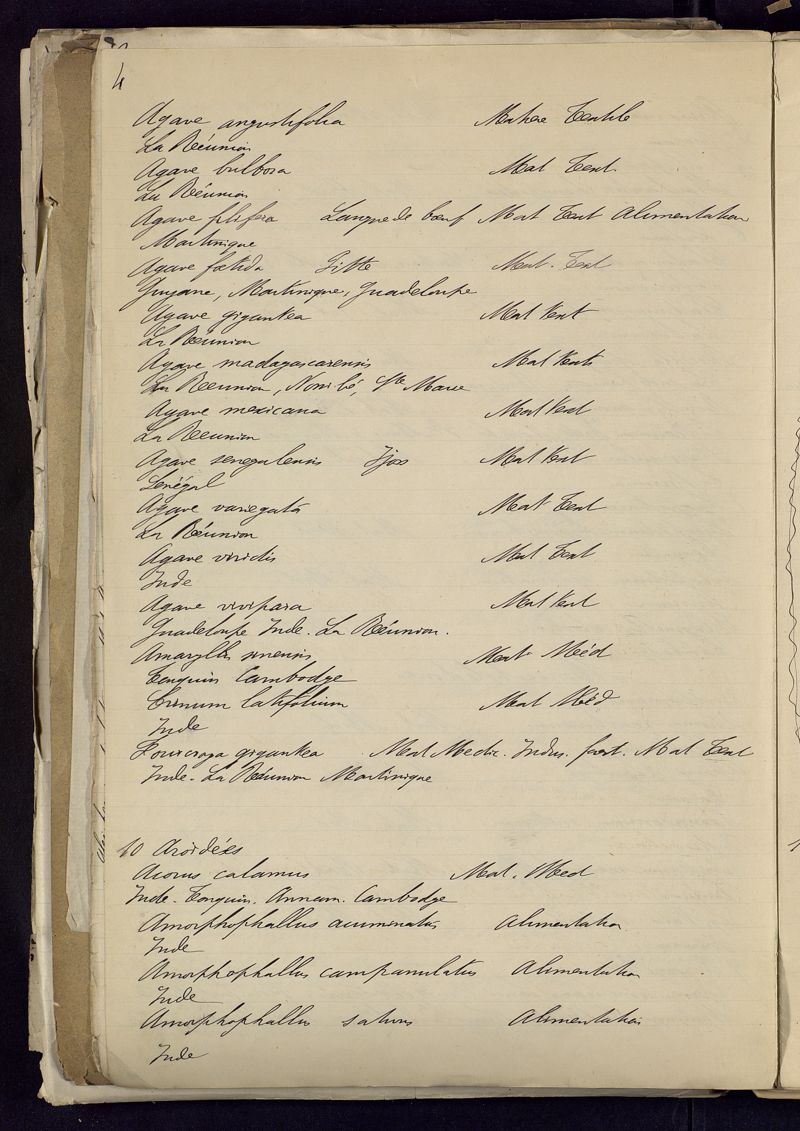 4
Agave angustifolia Matiere Textile
La Réunion
Agave bulbosa Mat Text.
La Réunion
Agave filifera Langue de bœuf Mat Text Alimentation
Martinique
Agave fœtida Pitte Mat. Text
Guyane, Martinique, Guadeloupe
Agave gigantea Mat Text
La Réunion
Agave madagascarensis Mat Text
La Réunion, Nossi bé, Ste Marie
Agave mexicana Mat Text
La Réunion
Agave senegalensis Mat Text
Sénégal
Agave variegata Mat Text
La Réunion
Agave viridis Mat Text
Inde
Agave vivipara Mat Text
Guadeloupe Inde. La Réunion.
Amaryllis sinensis Mat Méd
Tonquin Cambodge
Crinum latifolium Mat Méd
Inde
Fourcroya gigantea Mat Medic. Indus. Mat Text
Inde. La Réunion Martinique
10 Aroïdées
Acorus calamus Mat. Med
Inde. Tonquin. Annam. Cambodge
Amorphophallus acuminatus Alimentation
Inde
Amorphophallus campanulatus Alimentation
Inde
Amorphophallus sativus Alimentation
Inde